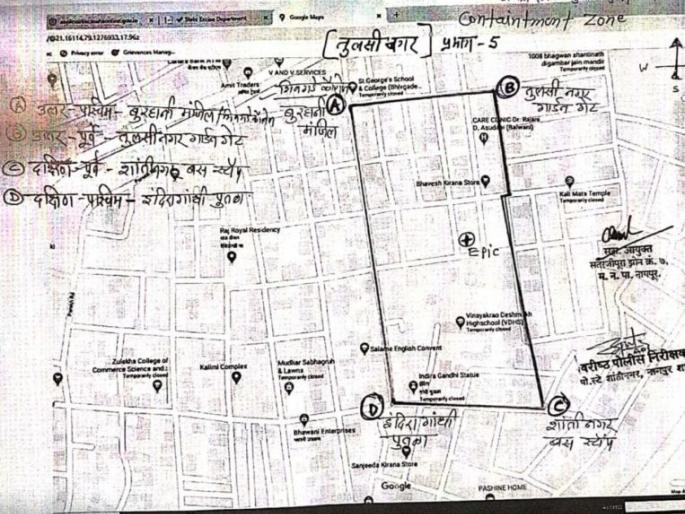 Containtment Zone
[तुलसी नगर] प्रभाग - 5
021.16114,79.1276933,17.96z
Privacy error
Grievances Manag...
Google Maps
1008 bhagwan shantinath
digambar jain mandir
Temporarily closed
V AND V SERVICES
Amrit Traders
St George's School
& College (Bhivgade...
Temporarily closed
W
S
A
B
तुलसी नगर
गार्डन गेट
बुरहानी
मंजिल
A उत्तर-पश्चिम - बुरहानी मंजिल
B उत्तर-पूर्व - तुलसीनगर गार्डन गेट
C दक्षिण-पूर्व - शांतीनगर बस स्टॉप
D दक्षिण-पश्चिम - इंदिरागांधी पुतळा
CARE CLINIC Dr. Rajani
D. Asudani (Balwani)
Bhavesh Kirana Store
Kali Mata Temple
Temporarily closed
Raj Royal Residency
Epic
सहा. आयुक्त
सतरंजीपुरा झोन क्रं. ७,
म. न. पा. नागपूर.
Vinayakrao Deshmukh
Highschool (VDHS)
Temporarily closed
Salame English Convent
वरीष्ठ पोलीस निरीक्षक
पो.स्टे शांतीनगर, नागपुर
Zulekha College of
Commerce Science and...
Temporarily closed
Kalimi Complex
Mudliar Sabhagruh
& Lawns
Temporarily closed
Indira Gandhi Statue
Temporarily closed
D
C
इंदिरा गांधी
पुतळा
शांती नगर
बस स्टॉप
Bhawani Enterprises
Sanjeeda Kirana Store
Google
PASHINE HOME